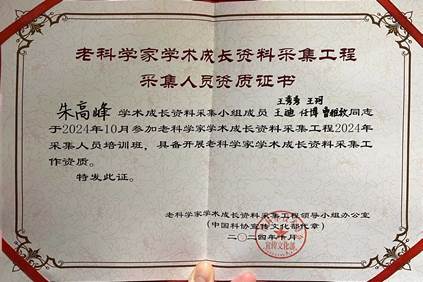 老科学家学术成长资料采集工程
采集人员资质证书
王秀秀 王珂
朱高峰 学术成长资料采集小组成员 王迪 任博 同志
于2024年10月参加老科学家学术成长资料采集工程2024年
采集人员培训班，具备开展老科学家学术成长资料采集工
作资质。
特发此证。
老科学家学术成长资料采集工程领导小组办公室
(中国科协宣传文化部代章)
二〇二四年十月
宣传文化部